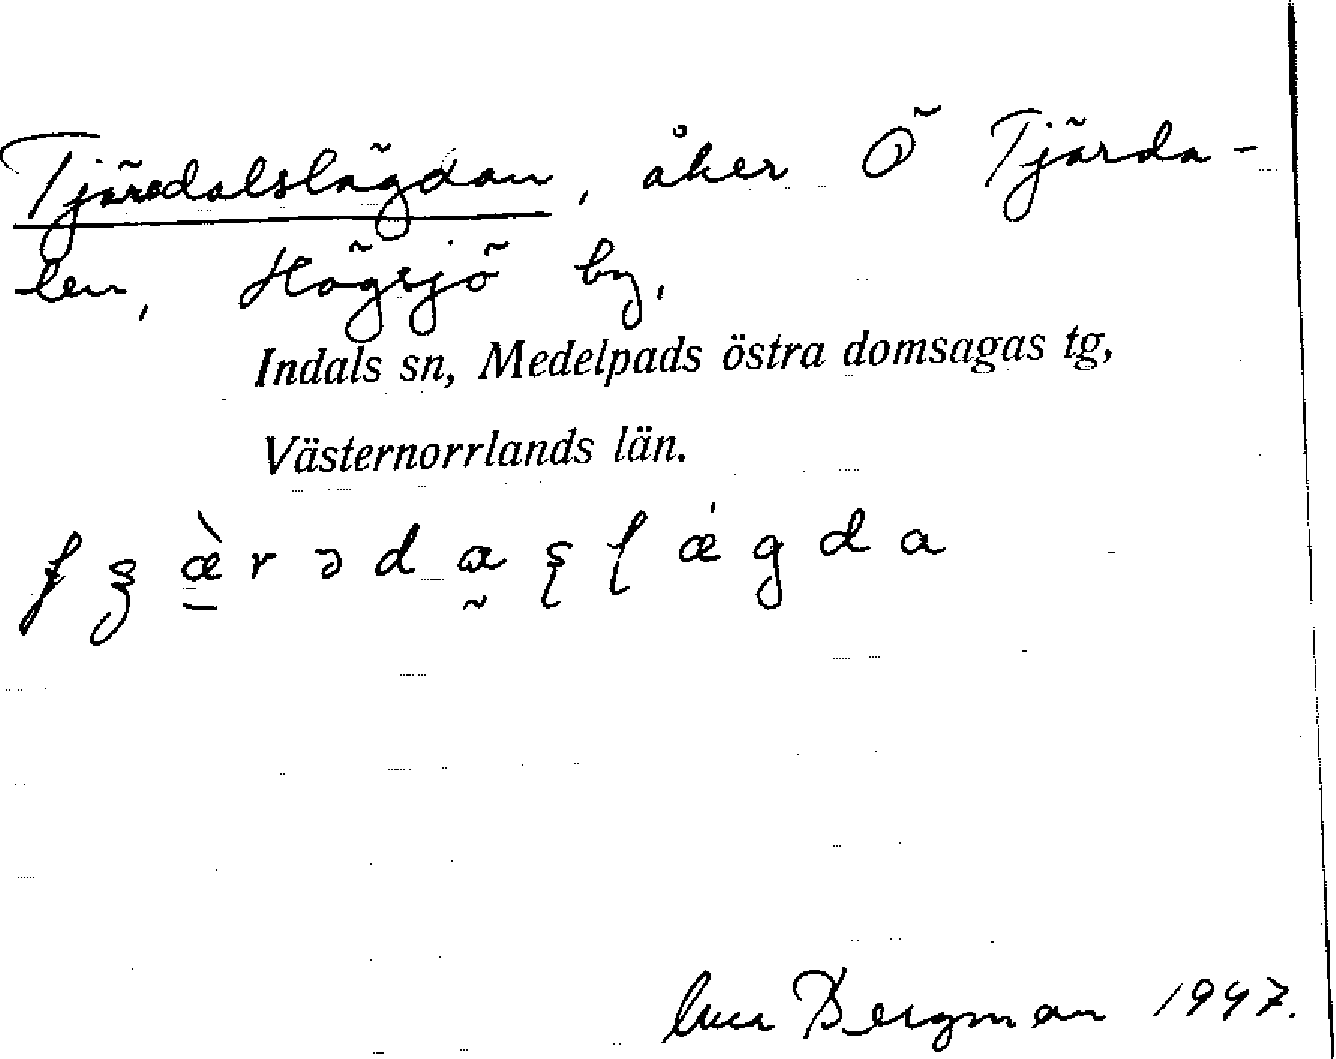 Tjäredalslägdan, åker Ö Tjärda-
len, Högsjö by,
Indals sn, Medelpads östra domsagas tg,
Västernorrlands län.
Bergman 1947.